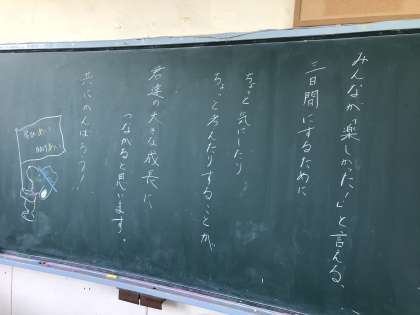 みんなが「楽しかった!」と言える
三日間にするために
ちょっと気にしたり
ちょっと考えたりすることが、
君達の大きな成長に
つながると思います。
共にがんばろう!!